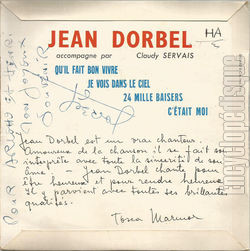 JEAN DORBEL
HA
accompagné par Claudy SERVAIS
QU'IL FAIT BON VIVRE
JE VOIS DANS LE CIEL
24 MILLE BAISERS
C'ÉTAIT MOI
Jean Dorbel est un vrai chanteur.
Amoureux de la chanson il en fait son
interprète avec toute la sincérité de son
âme. - Jean Dorbel chante pour
être heureux et pour rendre heureux
Il y parvient avec toutes ses brillantes
qualités.
Tosca Marmor
POUR
SOUVENIR
Dorbel